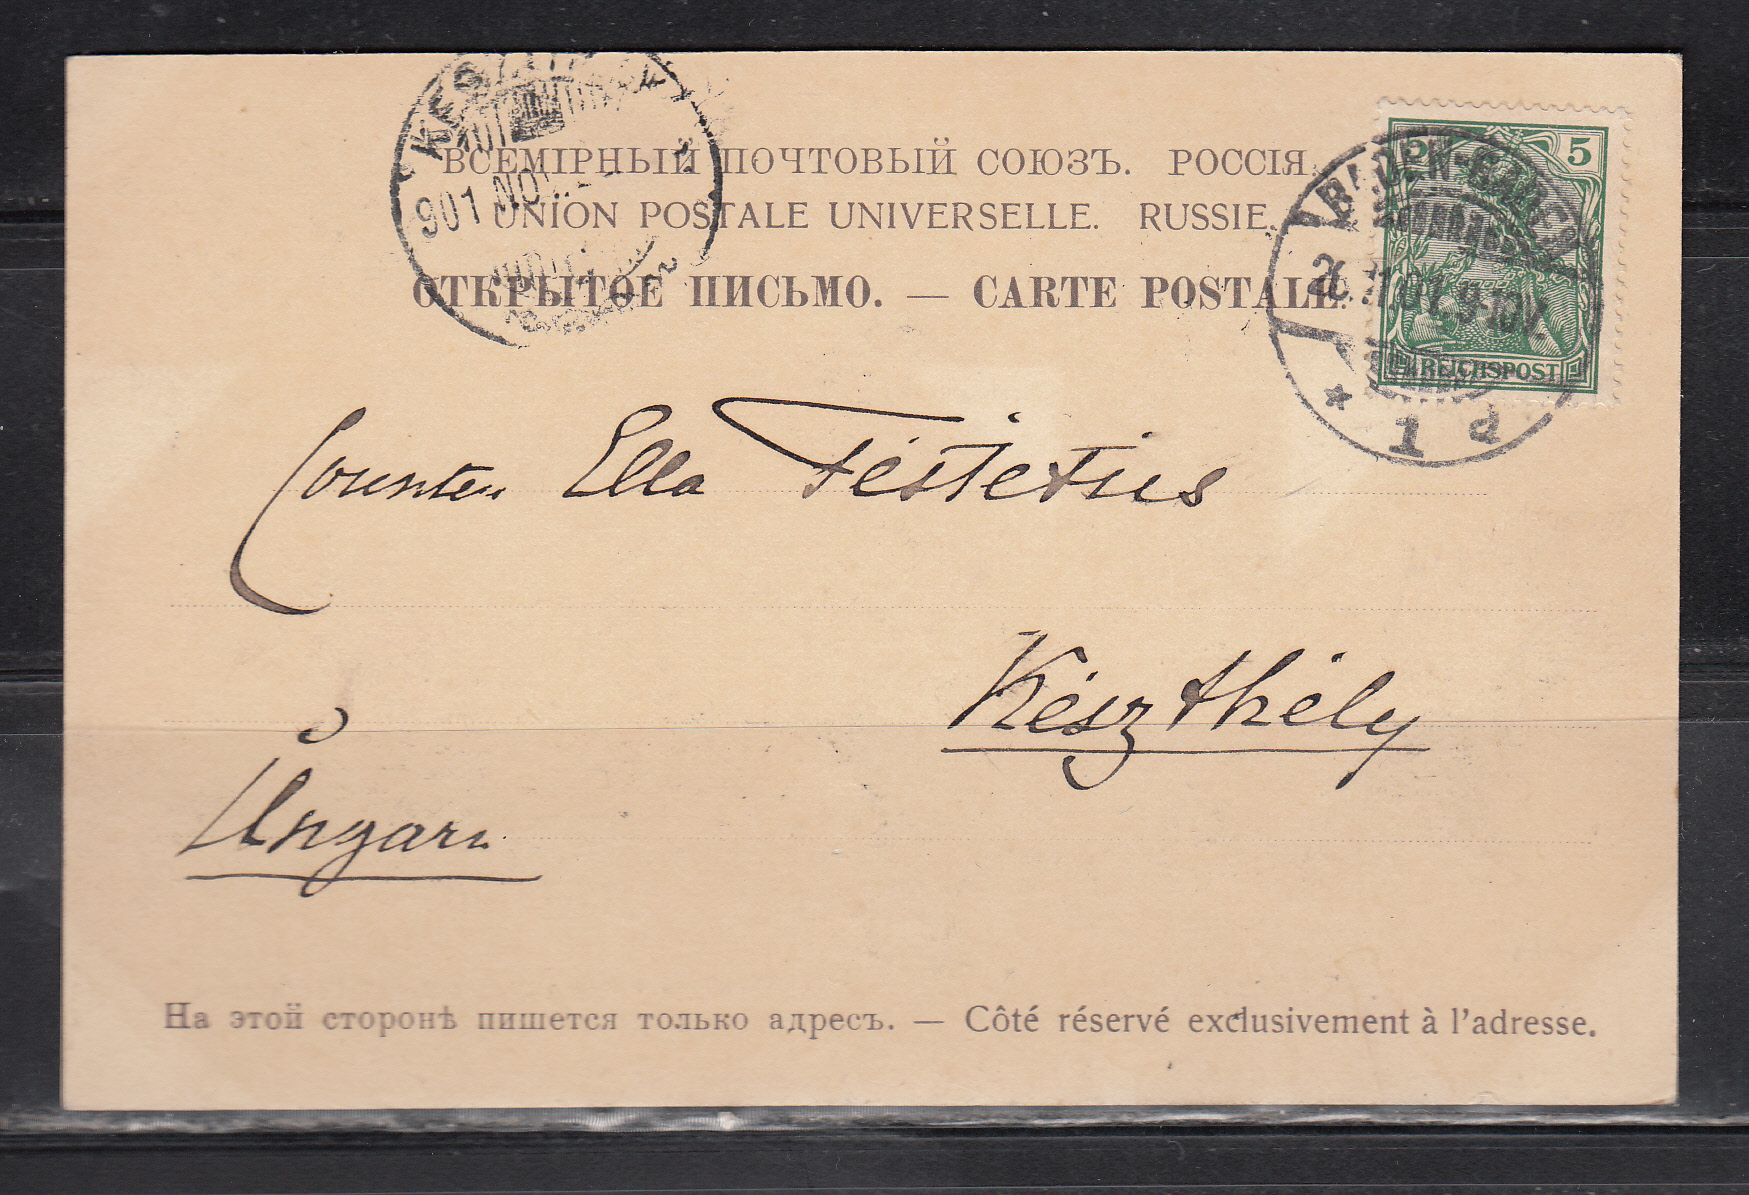 ВСЕМІРНЫЙ ПОЧТОВЫЙ СОЮЗЪ. РОССІЯ.
UNION POSTALE UNIVERSELLE. RUSSIE.
ОТКРЫТОЕ ПИСЬМО. — CARTE POSTALE.
901 NOV.
5
BADEN-BADEN
9-10V
REICHSPOST
* 1 d
Ella
Keszthély
Ungarn
На этой сторонѣ пишется только адресъ. — Côté réservé exclusivement à l'adresse.